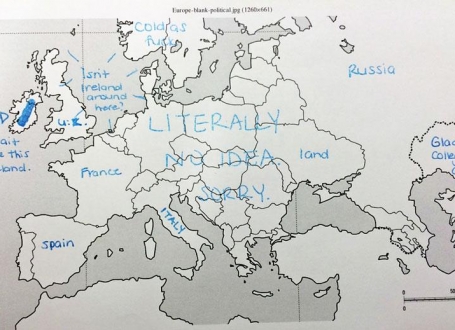 Europe-blank-political.jpg (1260×661)
cold as
fuck
Isn't
Ireland
around
here?
Russia
U.K
this
LITERALLY
NO IDEA
SORRY.
land
France
ITALY
spain
0